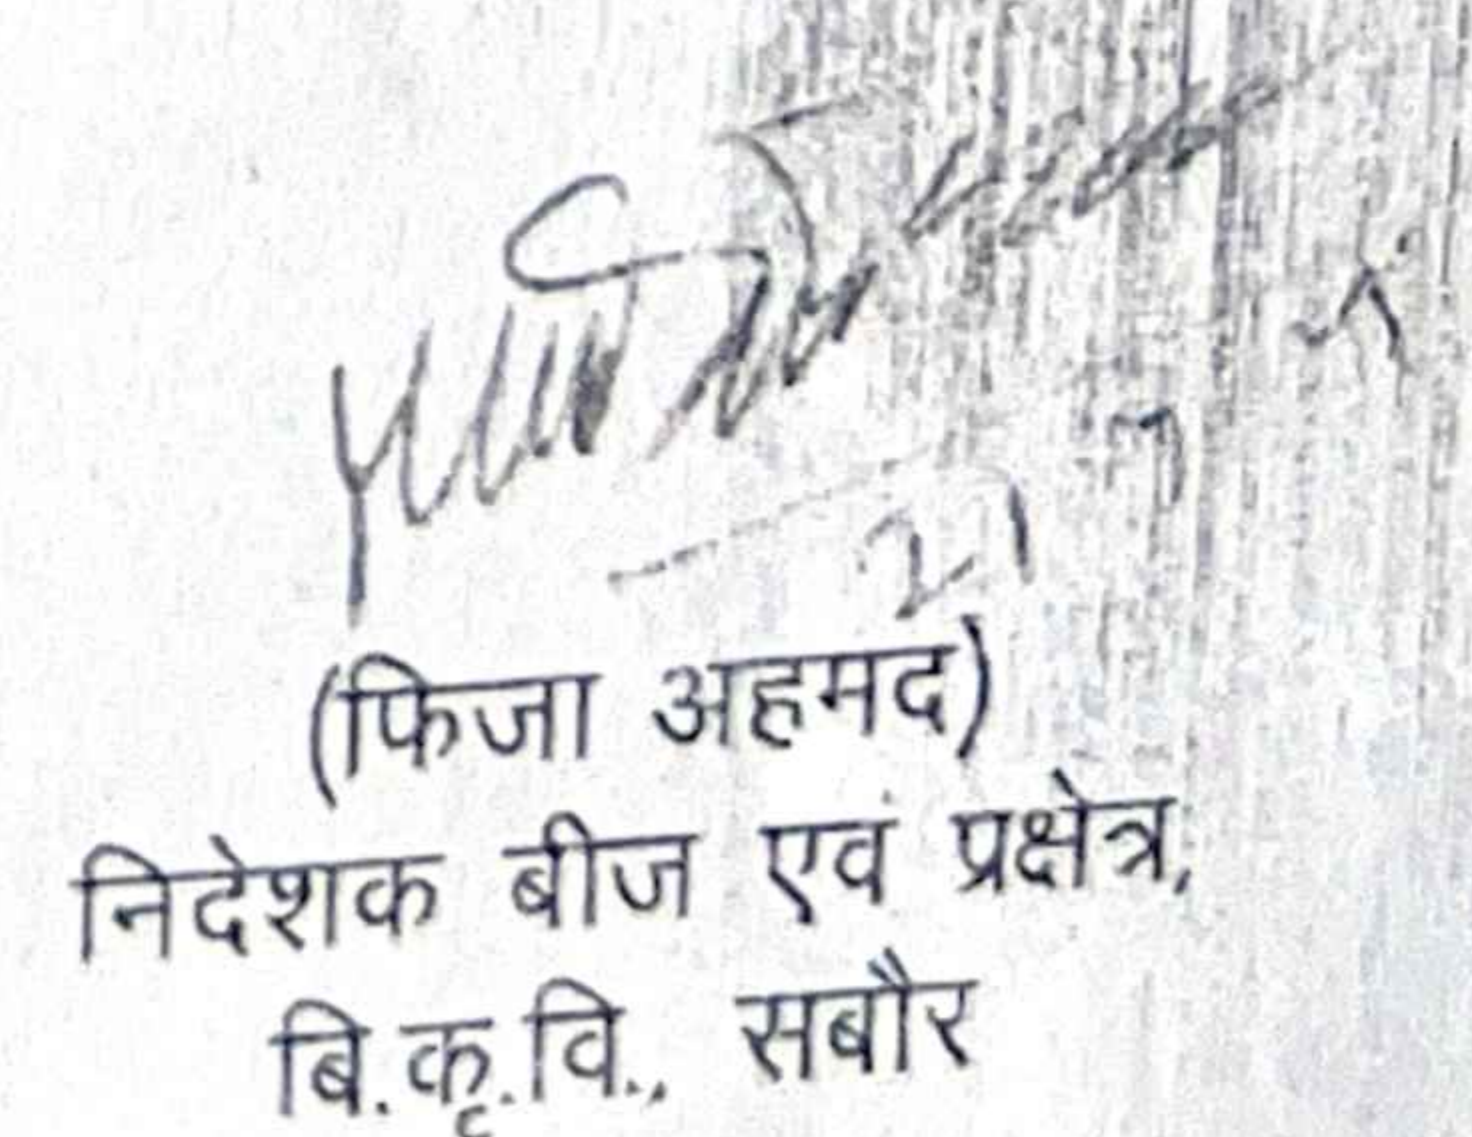 (फिजा अहमद)
निदेशक बीज एवं प्रक्षेत्र,
बि.कृ.वि., सबौर